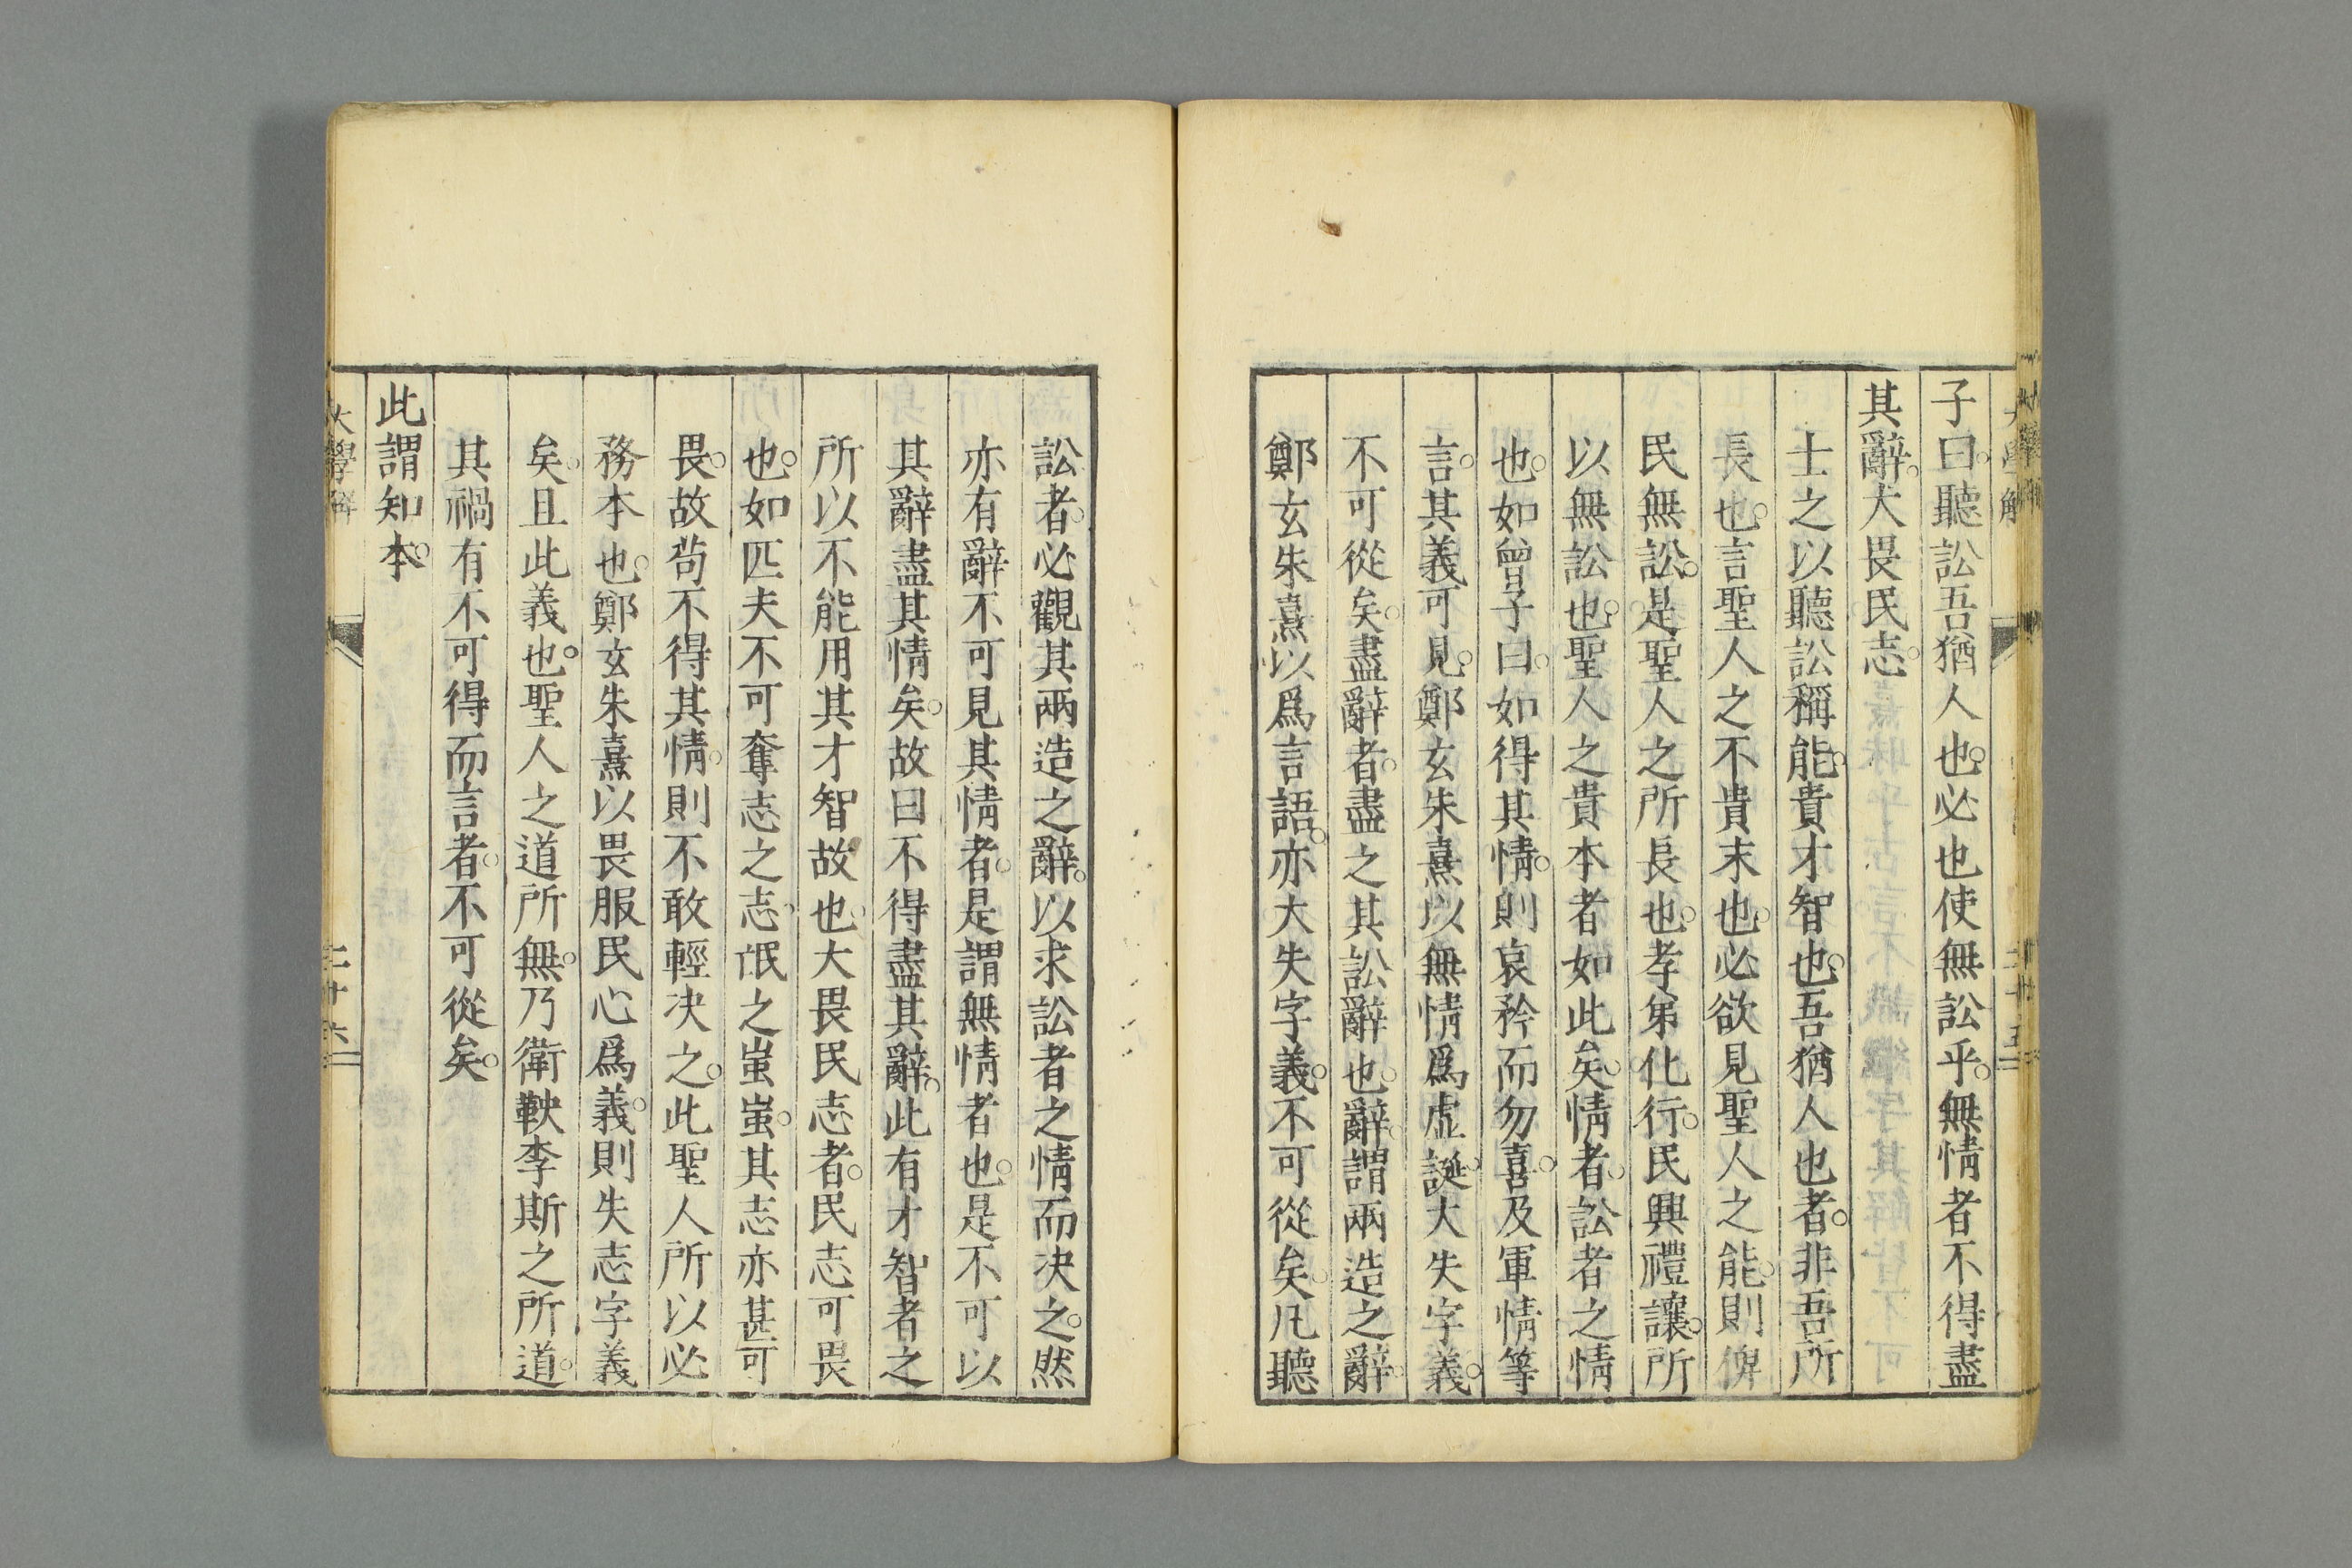 子曰。聽訟吾猶人也。必也使無訟乎。無情者不得盡
其辭。大畏民志。
士之以聽訟稱能。貴才智也。吾猶人也者。非吾所
長也。言聖人之不貴末也。必欲見聖人之能。則俾
民無訟。是聖人之所長也。孝弟化行。民興禮讓。所
以無訟也。聖人之貴本者如此矣。情者。訟者之情
也。如曾子曰。如得其情。則哀矜而勿喜。及軍情等
言。其義可見。鄭玄朱熹以無情爲虛誕。大失字義。
不可從矣。盡辭者。盡之其訟辭也。辭。謂兩造之辭。
鄭玄朱熹以爲言語。亦大失字義。不可從矣。凡聽
訟者。必觀其兩造之辭。以求訟者之情而决之。然
亦有辭不可見其情者。是謂無情者也。是不可以
其辭盡其情矣。故曰不得盡其辭。此有才智者之
所以不能用其才智故也。大畏民志者。民志可畏
也。如匹夫不可奪志之志。氓之蚩蚩。其志亦甚可
畏。故苟不得其情。則不敢輕决之。此聖人所以必
務本也。鄭玄朱熹以畏服民心爲義。則失志字義
矣。且此義也。聖人之道所無。乃衛鞅李斯之所道。
其禍有不可得而言者。不可從矣。
此謂知本。
大學解
二十六